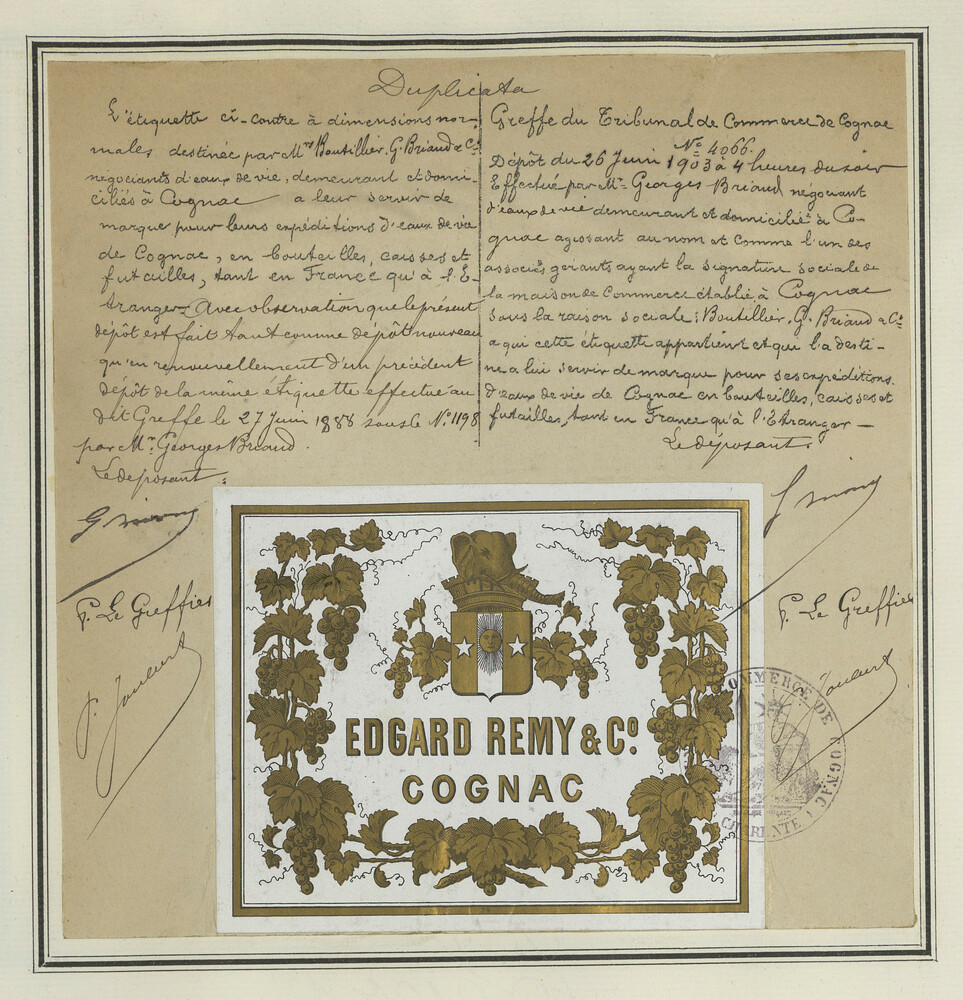 Duplicata
L'étiquette ci-contre à dimensions nor-
males destinée par Mrs Boutillier, G. Briand & Cie
négociants d'eaux de vie, demeurant et domi-
ciliés à Cognac a leur servir de
marque pour leurs expéditions d'eaux de vie
de Cognac, en bouteilles, caisses et
futailles, tant en France qu'à l'E-
tranger. Avec observation que le présent
dépôt est fait tant comme dépôt nouveau
qu'en renouvellement d'un précédent
dépôt de la même étiquette effectué au
dit Greffe le 27 Juin 1888 sous le No. 1198
par Mr. Georges Briand.
Le déposant.
P. Le Greffier
Greffe du Tribunal de Commerce de Cognac
No 4066.
Dépôt du 26 Juin 1903 à 4 heures du soir
Effectué par Mr. Georges Briand négociant
d'eaux de vie demeurant et domicilié à Co-
gnac agissant au nom et comme l'un des
associés gérants ayant la signature sociale de
la maison de Commerce établie à Cognac
sous la raison sociale: Boutillier, G. Briand & Co
a qui cette étiquette appartient et qui l'a desti-
née a lui servir de marque pour ses expéditions
d'eaux de vie de Cognac en bouteilles, caisses et
futailles, tant en France qu'à l'Etranger —
Le déposant.
P. Le Greffier
EDGARD REMY & Co
COGNAC
COMMERCE DE COGNAC
CHARENTE